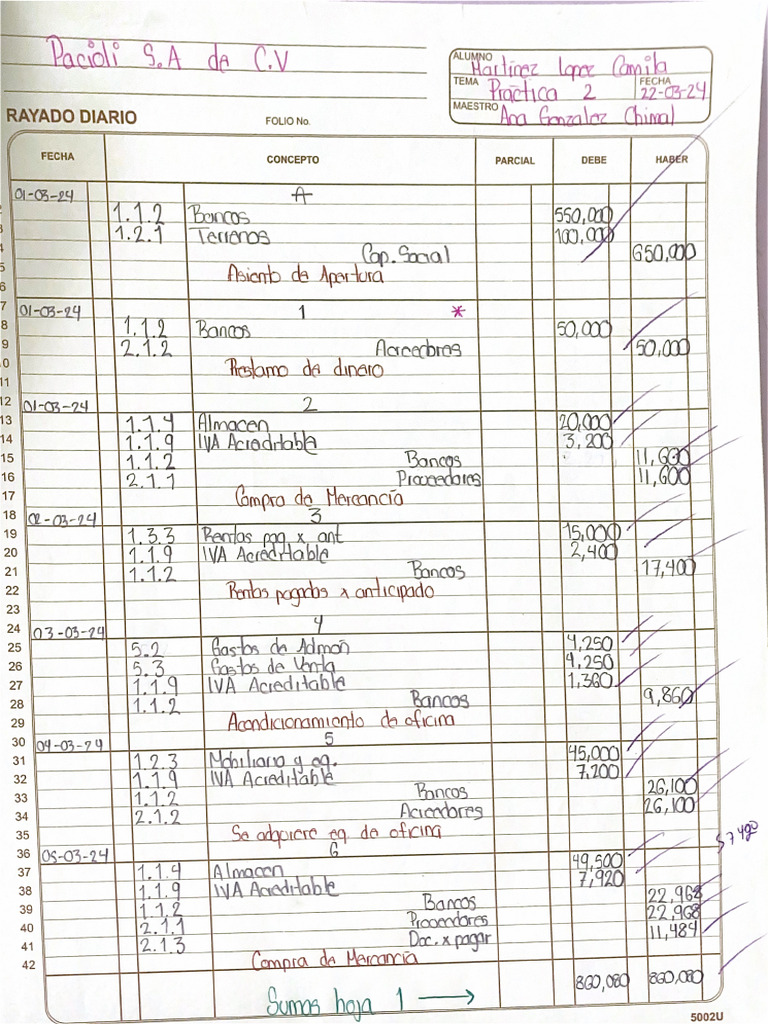 Pacioli S.A de C.V
ALUMNO Martinez Lopez Camila
TEMA Práctica 2 FECHA 22-03-24
MAESTRO Ana Gonzalez Chimal
RAYADO DIARIO FOLIO No.
FECHA CONCEPTO PARCIAL DEBE HABER
01-03-24 A
2 1.1.2 Bancos 550,000
3 1.2.1 Terrenos 100,000
4 Cap. Social 650,000
5 Asiento de Apertura
6
7 01-03-24 1 *
8 1.1.2 Bancos 50,000
9 2.1.2 Acreedores 50,000
10 Prestamo de dinero
11
12 01-03-24 2
13 1.1.4 Almacen 20,000
14 1.1.9 IVA Acreditable 3,200
15 1.1.2 Bancos 11,600
16 2.1.1 Proveedores 11,600
17 Compra de Mercancía
18 02-03-24 3
19 1.3.3 Rentas pag x ant 15,000
20 1.1.9 IVA Acreditable 2,400
21 1.1.2 Bancos 17,400
22 Rentas pagadas x anticipado
23
24 03-03-24 4
25 5.2 Gastos de Admón 4,250
26 5.3 Gastos de Venta 4,250
27 1.1.9 IVA Acreditable 1,360
28 1.1.2 Bancos 9,860
29 Acondicionamiento de oficina
30 04-03-24 5
31 1.2.3 Mobiliario y eq. 45,000
32 1.1.9 IVA Acreditable 7,200
33 1.1.2 Bancos 26,100
34 2.1.2 Acreedores 26,100
35 Se adquiere eq. de oficina
36 05-03-24 6
37 1.1.4 Almacen 49,500
38 1.1.9 IVA Acreditable 7,920
39 1.1.2 Bancos 22,968
40 2.1.1 Proveedores 22,968
41 2.1.3 Doc. x pagar 11,484
42 Compra de Mercancía
Sumas hoja 1 → 860,080 860,080
5002U